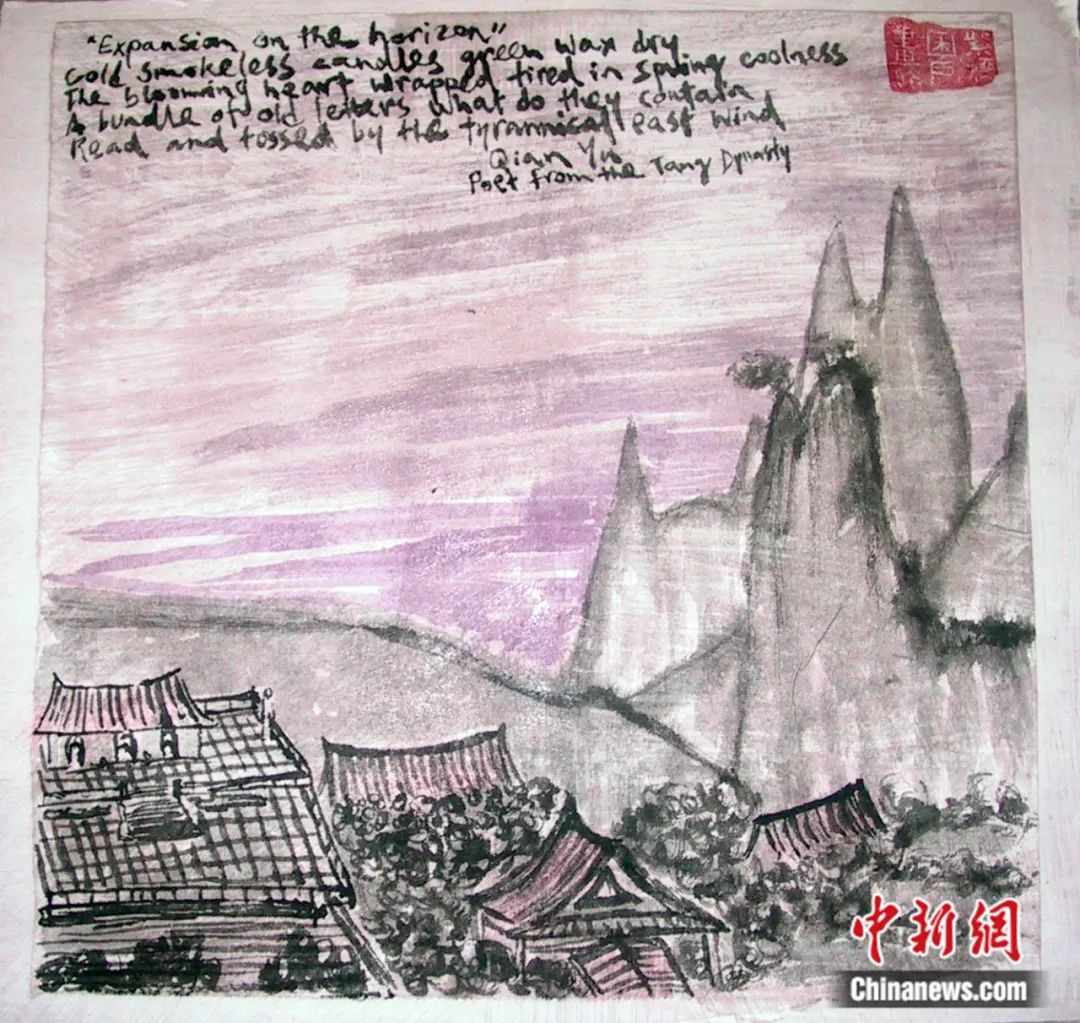 "Expansion on the horizon"
Cold smokeless candles green wax dry
The blooming heart wrapped tired in spring coolness
A bundle of old letters what do they contain
Read and tossed by the tyrannical east wind
Qian Yu
Poet from the Tang Dynasty
中新網
Chinanews.com